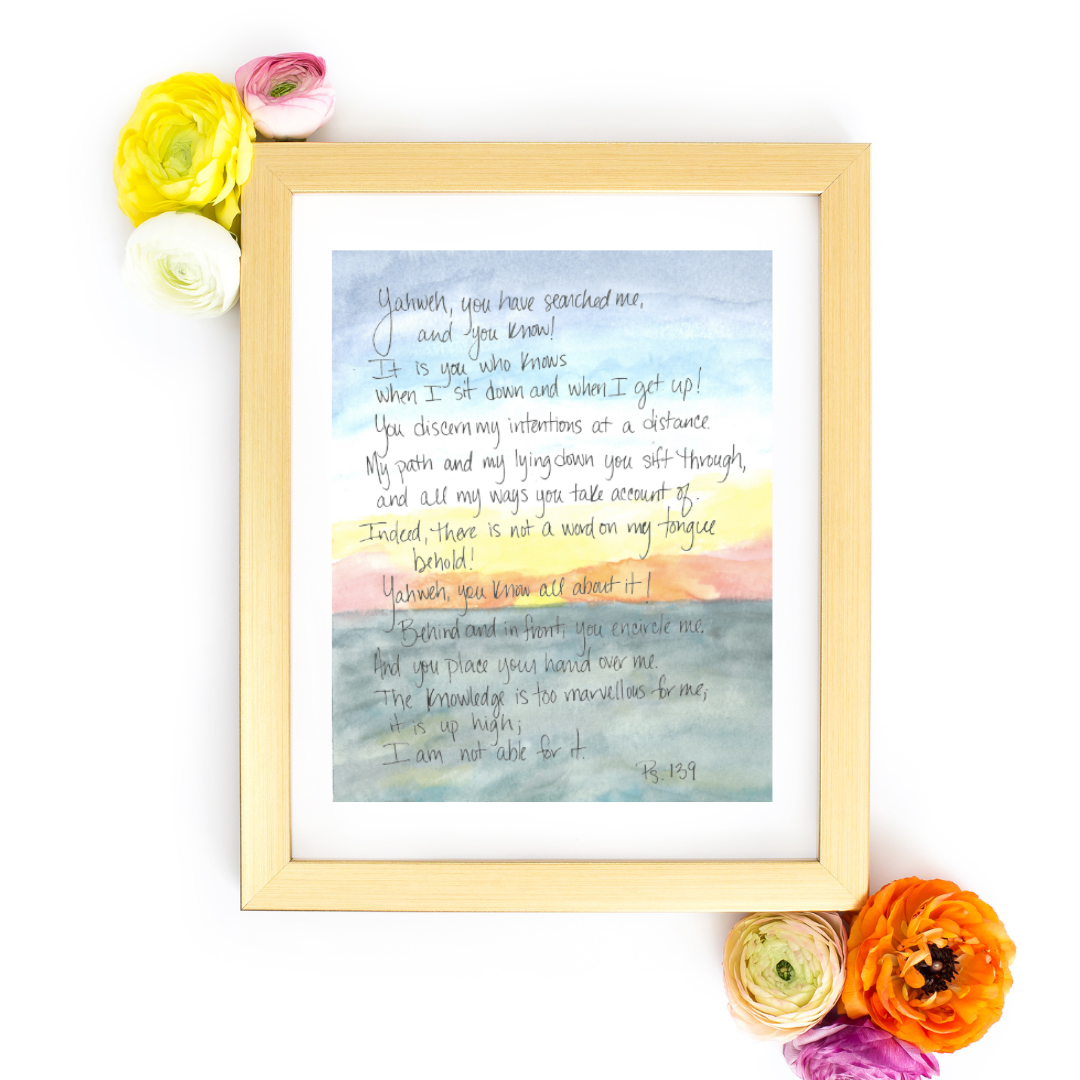 Yahweh, you have searched me,
and you know!
It is you who knows
when I sit down and when I get up!
You discern my intentions at a distance.
My path and my lying down you sift through,
and all my ways you take account of.
Indeed, there is not a word on my tongue
behold!
Yahweh, you know all about it!
Behind and in front, you encircle me.
And you place your hand over me.
The knowledge is too marvellous for me;
it is up high;
I am not able for it.
Ps. 139